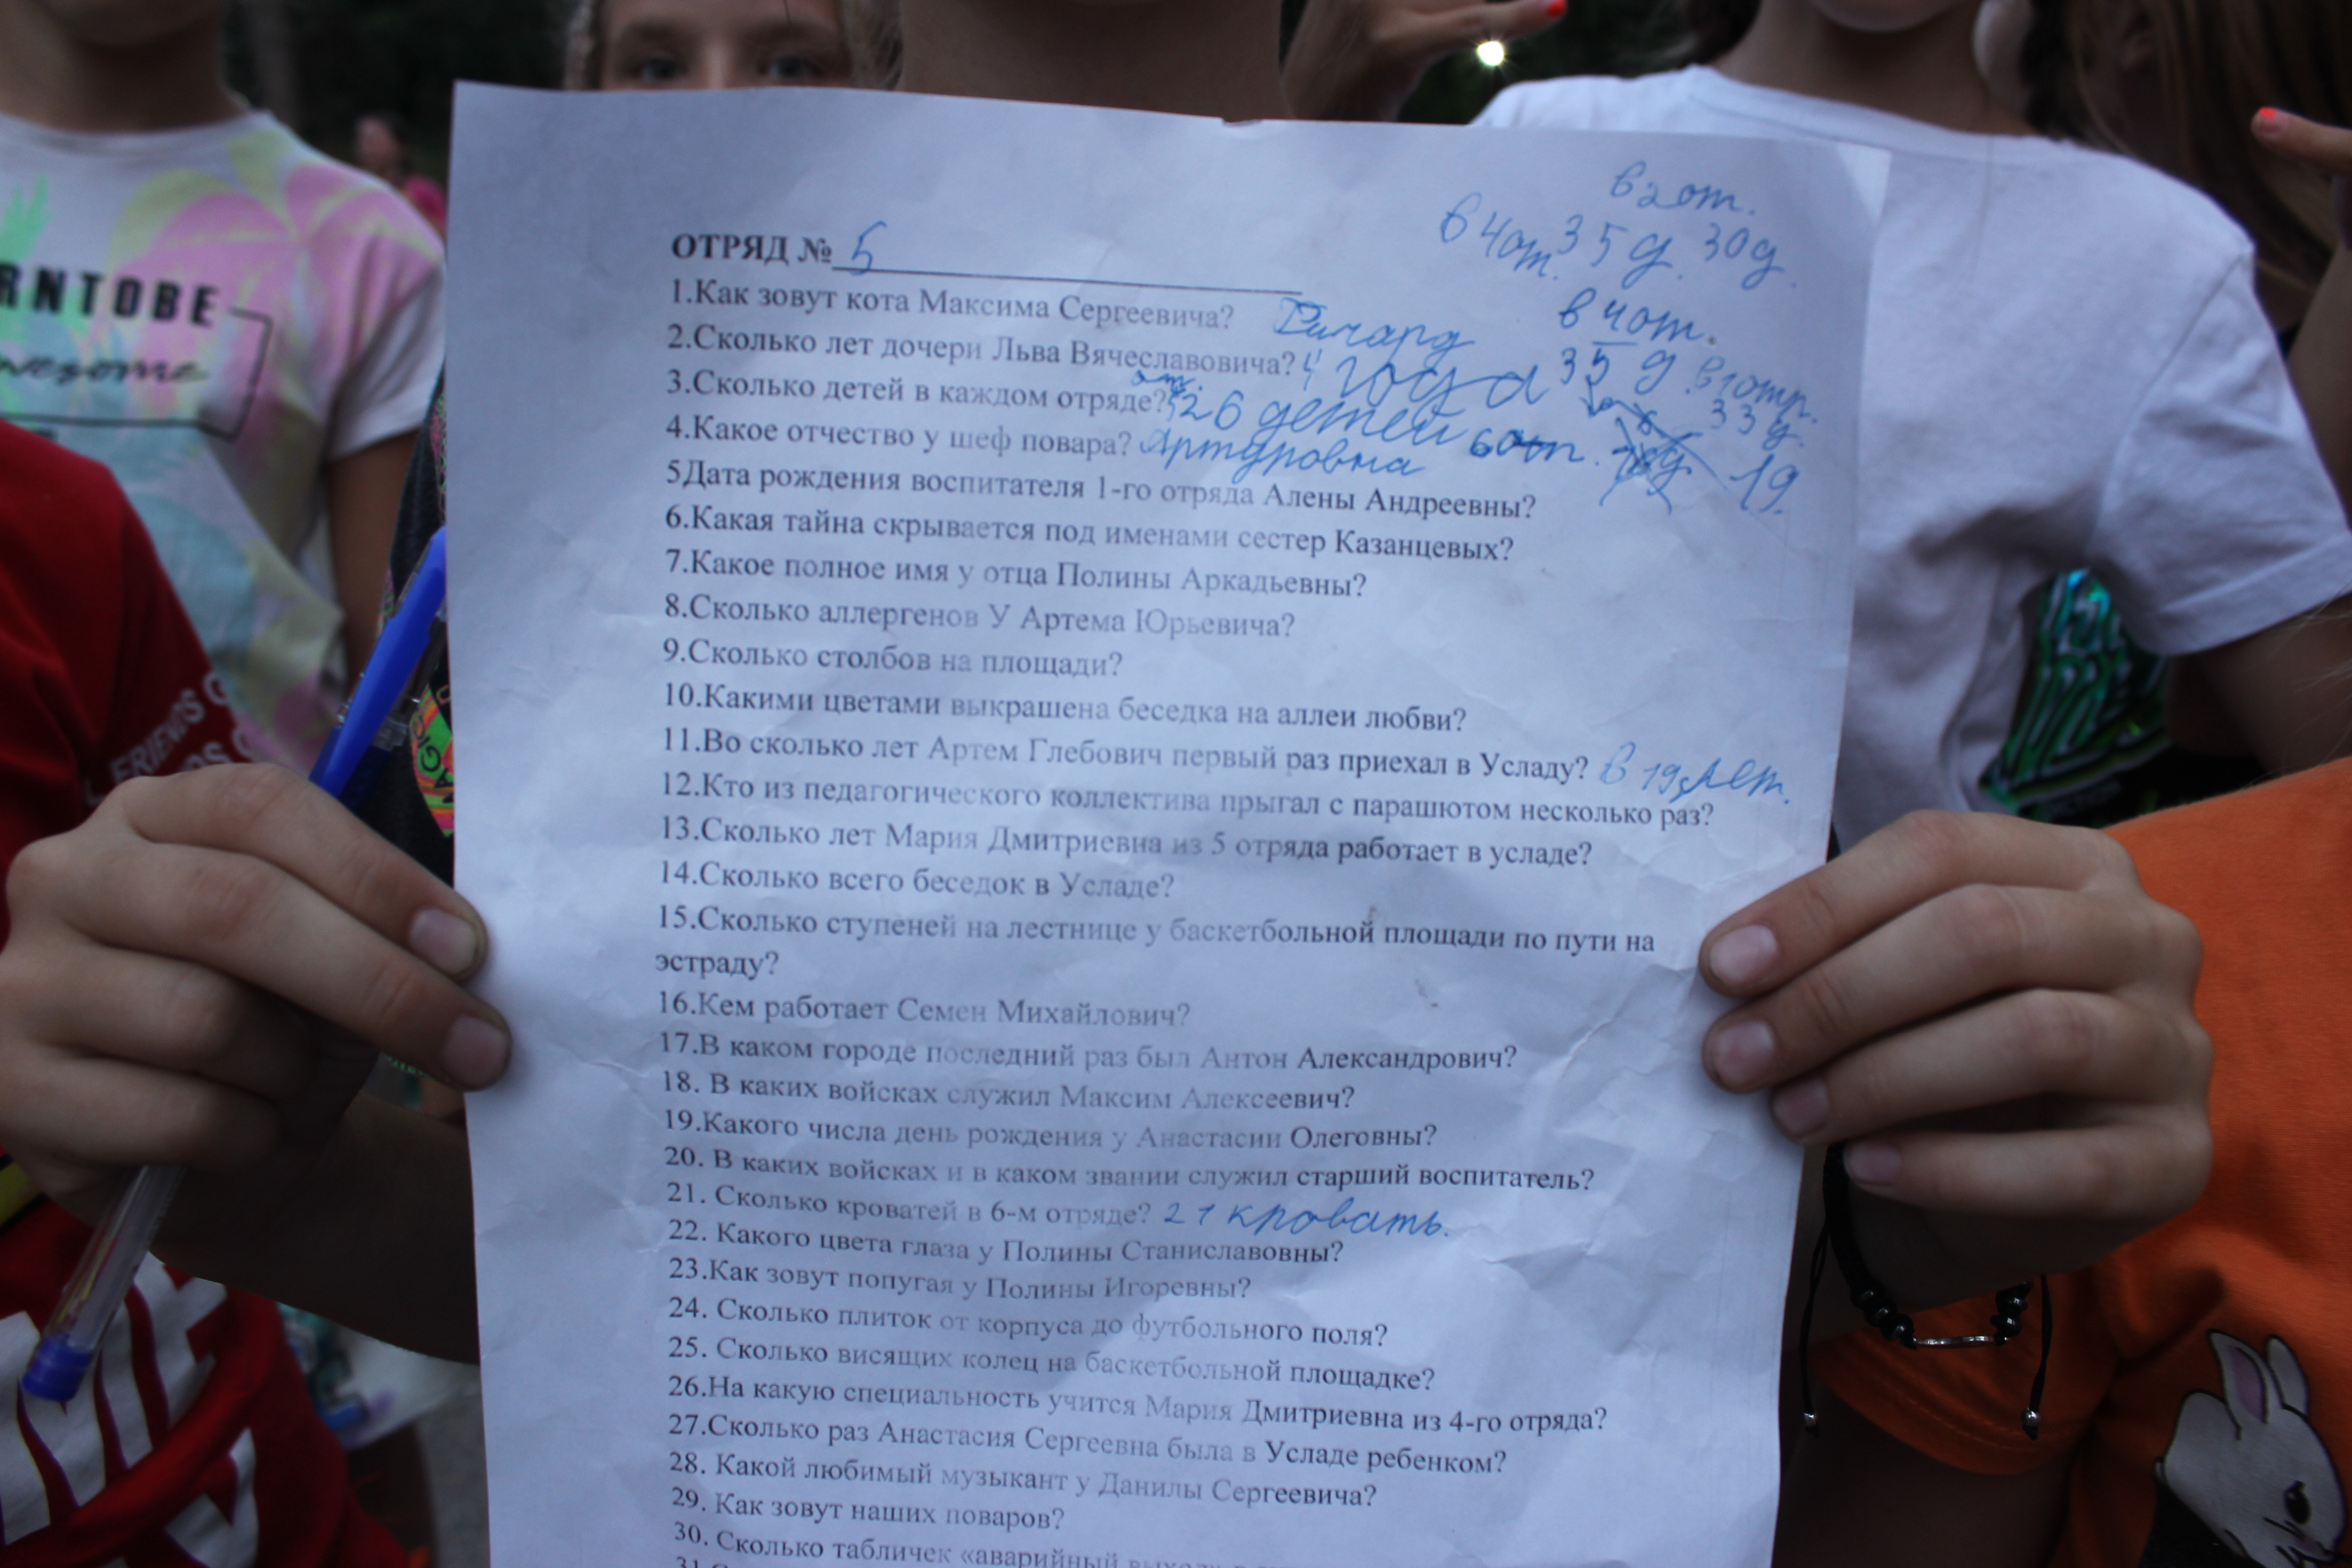 в 2 от.
в 4 от. 35 д. 30 д.
ОТРЯД № 5
1.Как зовут кота Максима Сергеевича? Ричард
в 4 от.
2.Сколько лет дочери Льва Вячеславовича? 4 года 35 д в 1 отр.
3.Сколько детей в каждом отряде? от. 5 26 детей 33 д.
4.Какое отчество у шеф повара? Артуровна 6 от. 19.
5Дата рождения воспитателя 1-го отряда Алены Андреевны?
6.Какая тайна скрывается под именами сестер Казанцевых?
7.Какое полное имя у отца Полины Аркадьевны?
8.Сколько аллергенов У Артема Юрьевича?
9.Сколько столбов на площади?
10.Какими цветами выкрашена беседка на аллеи любви?
11.Во сколько лет Артем Глебович первый раз приехал в Усладу? в 19 лет.
12.Кто из педагогического коллектива прыгал с парашютом несколько раз?
13.Сколько лет Мария Дмитриевна из 5 отряда работает в усладе?
14.Сколько всего беседок в Усладе?
15.Сколько ступеней на лестнице у баскетбольной площади по пути на
эстраду?
16.Кем работает Семен Михайлович?
17.В каком городе последний раз был Антон Александрович?
18. В каких войсках служил Максим Алексеевич?
19.Какого числа день рождения у Анастасии Олеговны?
20. В каких войсках и в каком звании служил старший воспитатель?
21. Сколько кроватей в 6-м отряде? 21 кровать.
22. Какого цвета глаза у Полины Станиславовны?
23.Как зовут попугая у Полины Игоревны?
24. Сколько плиток от корпуса до футбольного поля?
25. Сколько висящих колец на баскетбольной площадке?
26.На какую специальность учится Мария Дмитриевна из 4-го отряда?
27.Сколько раз Анастасия Сергеевна была в Усладе ребенком?
28. Какой любимый музыкант у Данилы Сергеевича?
29. Как зовут наших поваров?
30. Сколько табличек «аварийный выход»
31
RNTOBE
FRIENDS